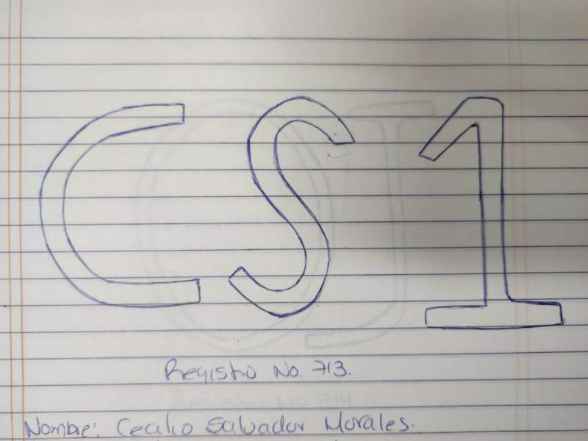 CS1
Registro No. 713.
Nombre: Cecilio Salvador Morales.